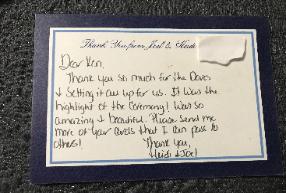 Thank You from Joel & Heidi
Dear Ken,
Thank you so much for the Doves
& Setting it all up for us. It was the
highlight of the Ceremony! Was so
amazing & beautiful. Please send me
more of your cards that I can pass to
others!
Thank you,
Heidi & Joel